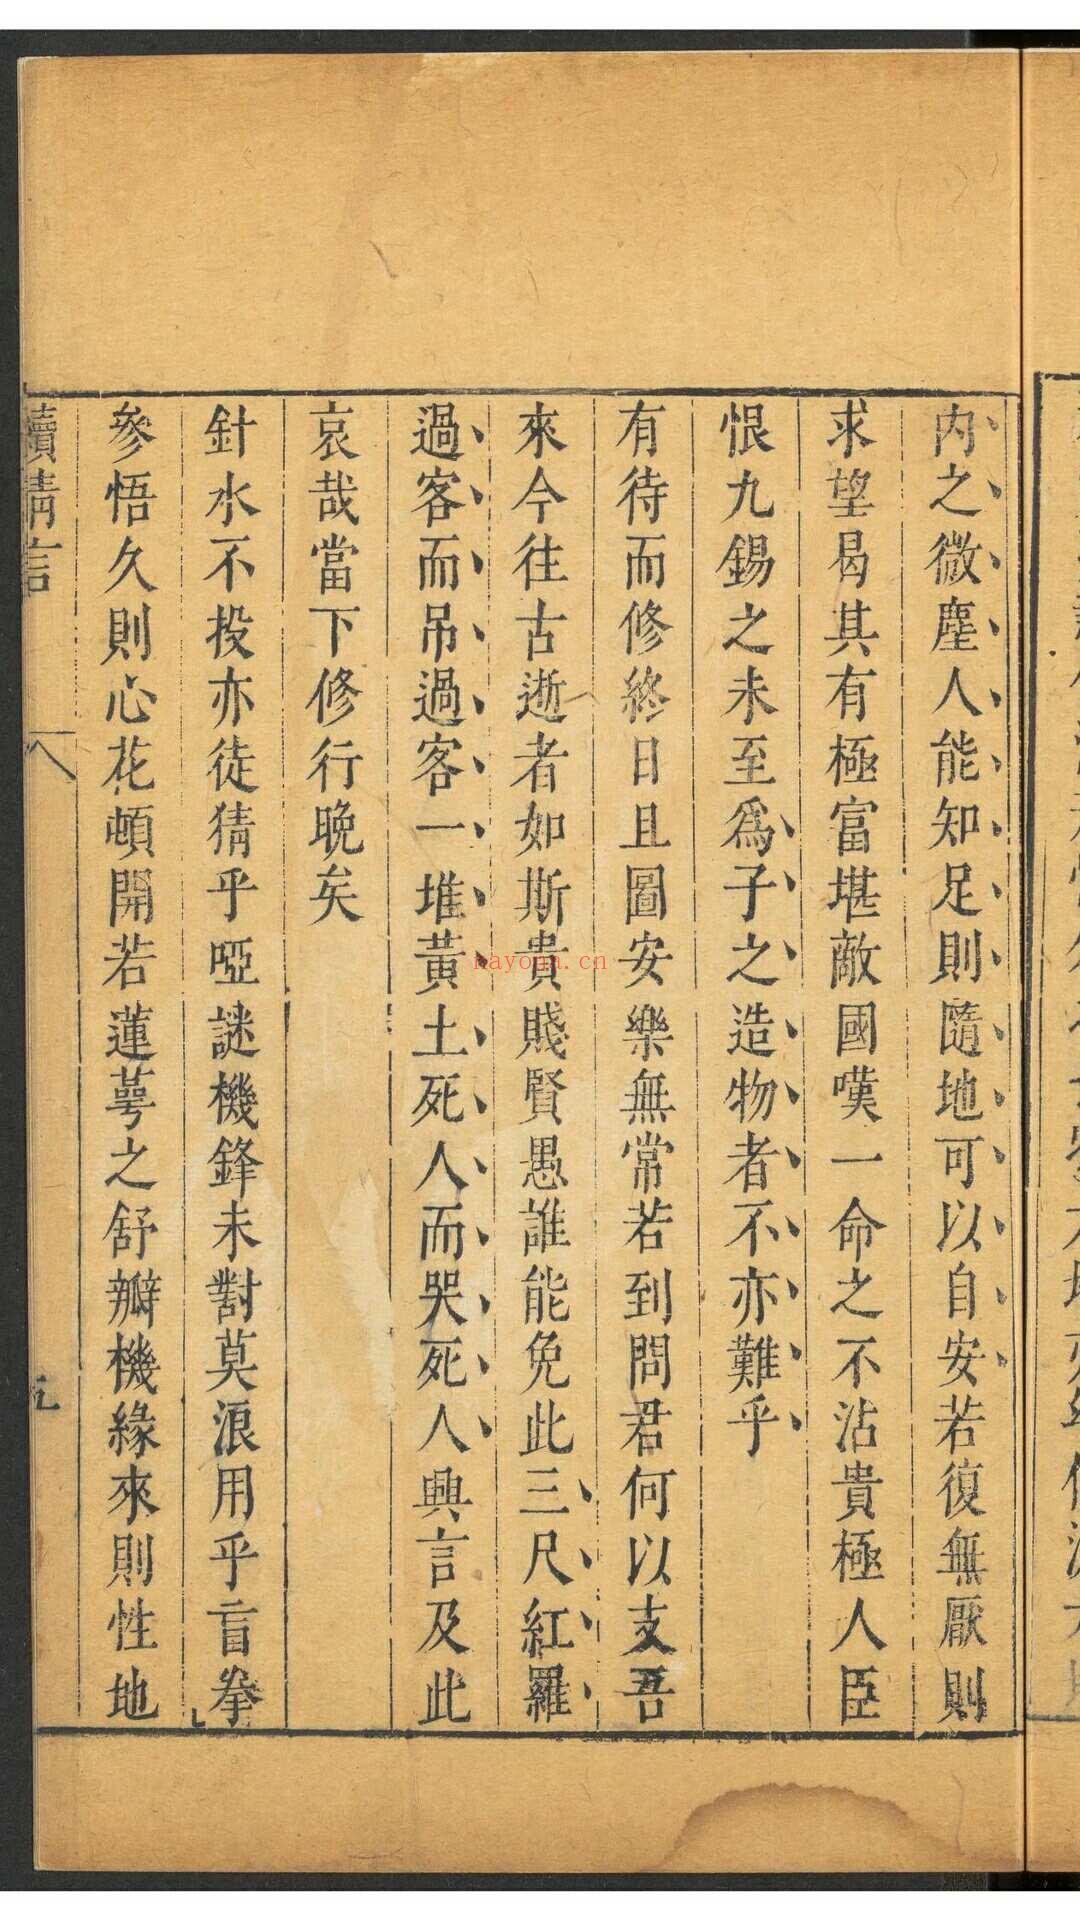 內之微塵人能知足則隨地可以自安若復無厭則
求望曷其有極富堪敵國嘆一命之不沾貴極人臣
恨九錫之未至爲子之造物者不亦難乎
有待而修終日且圖安樂無常若到問君何以支吾
來今往古逝者如斯貴賤賢愚誰能免此三尺紅羅
過客而吊過客一堆黃土死人而哭死人興言及此
哀哉當下修行晚矣
針水不投亦徒猜乎啞謎機鋒未對莫浪用乎盲拳
參悟久則心花頓開若蓮萼之舒瓣機緣來則性地
續清言
nayona.cn